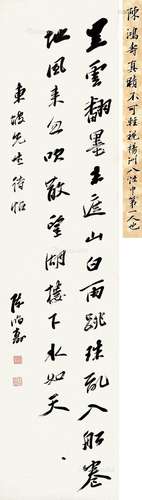 陳鴻壽真蹟不可輕視揚洲八怪中第一人也
黑雲翻墨未遮山白雨跳珠亂入船卷
地風來忽吹散望湖樓下水如天
東 先生
陳鴻壽